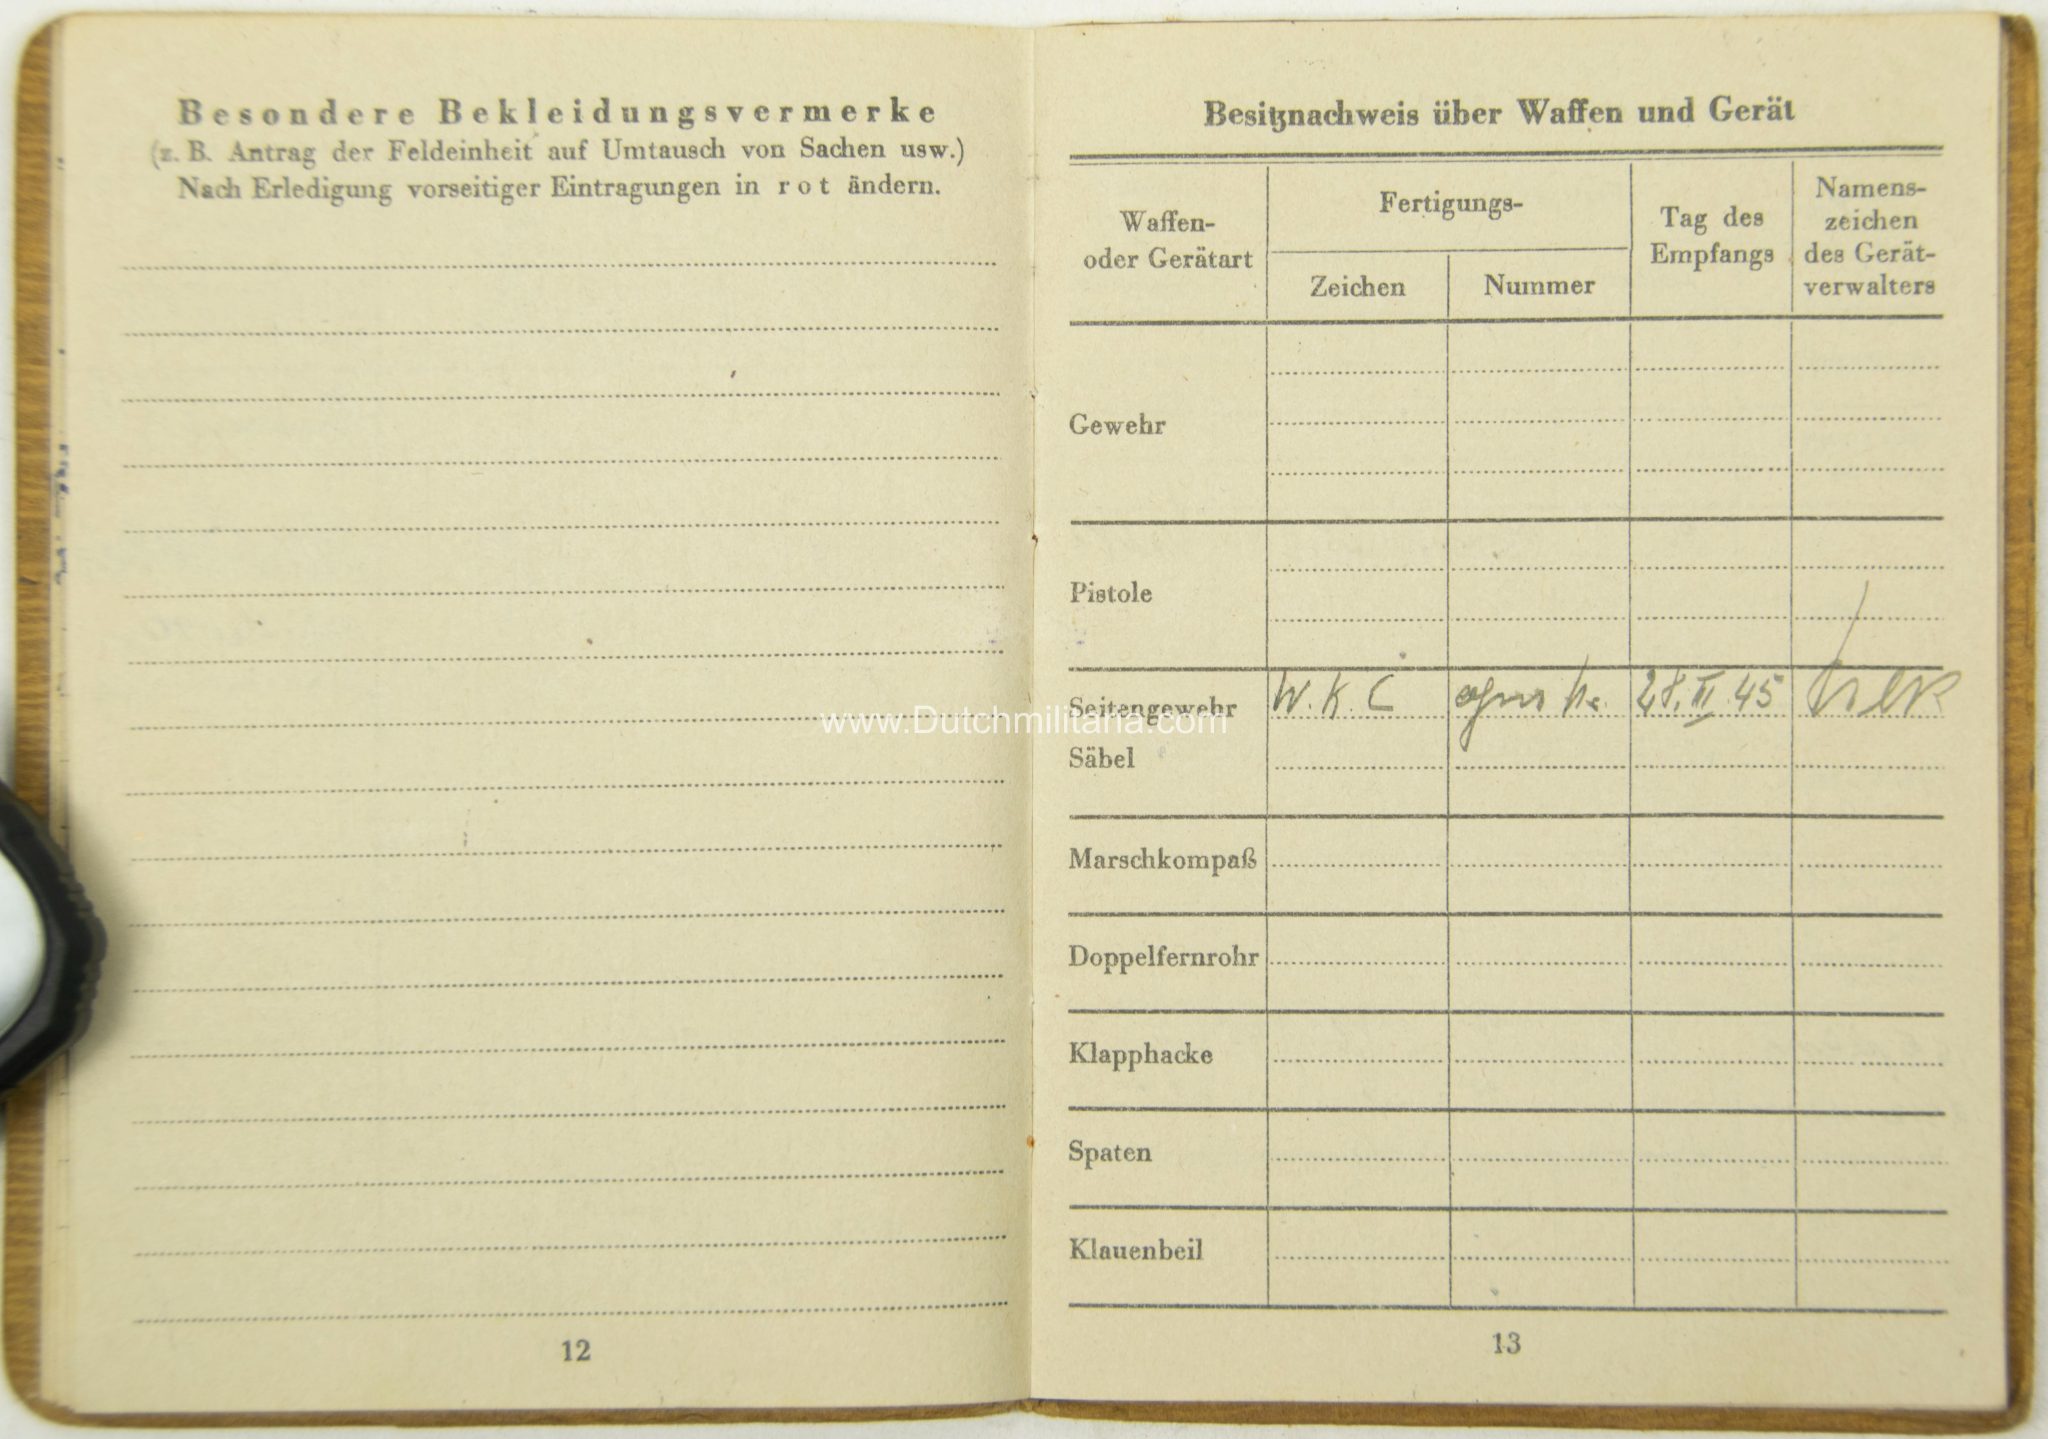 Besondere Bekleidungsvermerke
(z. B. Antrag der Feldeinheit auf Umtausch von Sachen usw.)
Nach Erledigung vorseitiger Eintragungen in rot ändern.
12
Besitznachweis über Waffen und Gerät
Waffen-
oder Gerätart
Fertigungs-
Zeichen
Nummer
Tag des
Empfangs
Namens-
zeichen
des Gerät-
verwalters
Gewehr
Pistole
Seitengewehr W.K.C ohne Nr. 28.II.45
Säbel
Marschkompaß
Doppelfernrohr
Klapphacke
Spaten
Klauenbeil
13
www.Dutchmilitaria.com